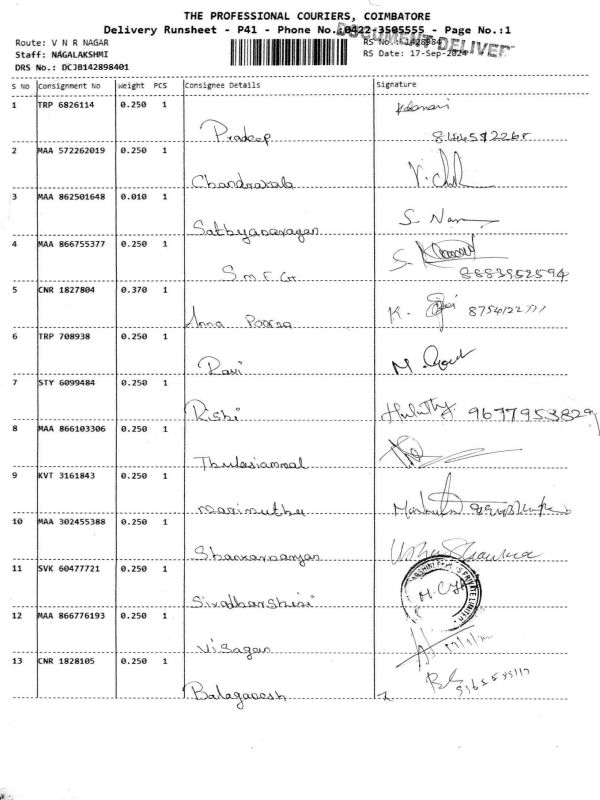 THE PROFESSIONAL COURIERS, COIMBATORE
Delivery Runsheet - P41 - Phone No.:0422-3505555 - Page No.:1
Route: V N R NAGAR
RS No.:
DOCUMENT DELIVER
Staff: NAGALAKSHMI
RS Date: 17-Sep-2024
DRS No.: DCJ8142898401
S No Consignment No Weight PCS Consignee Details Signature
1 TRP 6826114 0.250 1
Pradeep
2 MAA 572262019 0.250 1
Chandrakala
3 MAA 862501648 0.010 1
S. Nar
Sathyanarayanan
4 MAA 866755377 0.250 1
S.
S.M.F.G 8883952594
5 CNR 1827804 0.370 1
K.
Anna Poorna
6 TRP 708938 0.250 1
Ravi
7 STY 6099484 0.250 1
Rishi 9677953829
8 MAA 866103306 0.250 1
Thulasiammal
9 KVT 3161843 0.250 1
Marimuthu
10 MAA 302455388 0.250 1
11 SVK 60477721 0.250 1
PRIVATE LIMITED
Sivadharshini
12 MAA 866776193 0.250 1
Visagan
13 CNR 1828105 0.250 1
Balaganesh